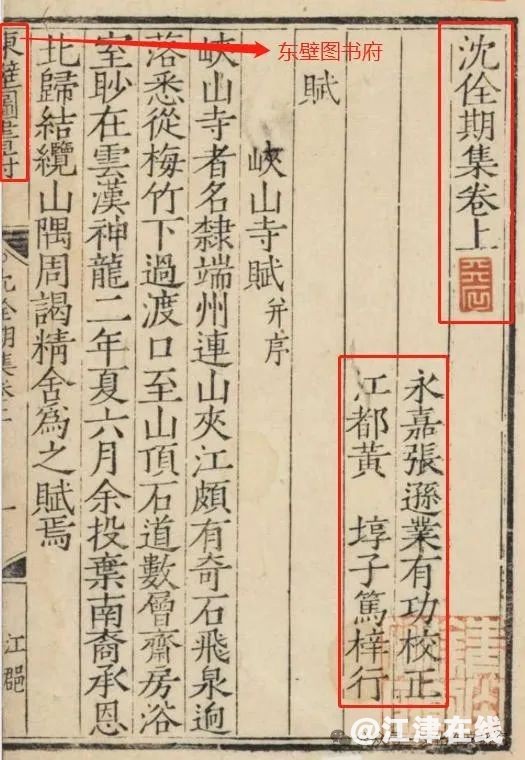 沈佺期集卷上
永嘉張遜業有功校正
江都黃　埻子篤梓行
賦
峽山寺賦并序
峽山寺者名隸端州連山夾江頗有奇石飛泉迿
落悉從梅竹下過渡口至山頂石道數層齋房浴
室眇在雲漢神龍二年夏六月余投棄南裔承恩
北歸結纜山隅周謁精舍為之賦焉
東壁圖書府
沈佺期集卷上
一
江郡
东壁图书府
@江津在线